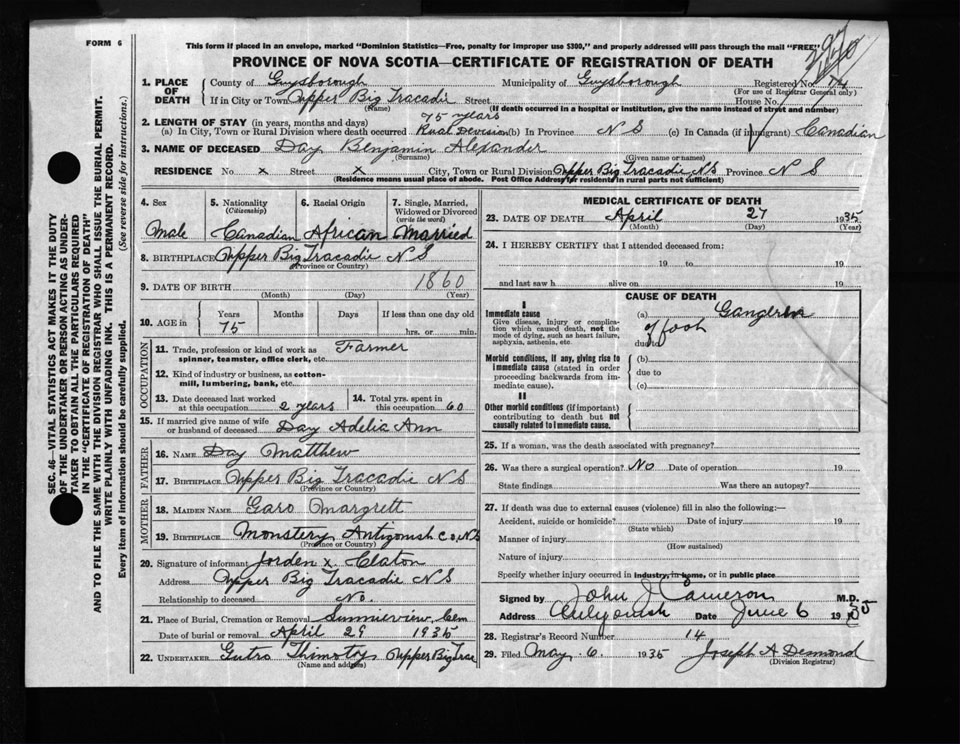 FORM 6
This form if placed in an envelope, marked "Dominion Statistics—Free, penalty for improper use $300," and properly addressed will pass through the mail "FREE"
PROVINCE OF NOVA SCOTIA—CERTIFICATE OF REGISTRATION OF DEATH
1. PLACE OF DEATH
County of Guysborough Municipality of Guysborough Registered No. 14
(For use of Registrar General only)
If in City or Town Upper Big Tracadie Street House No.
(Name) (If death occurred in a hospital or institution, give the name instead of street and number)
2. LENGTH OF STAY (in years, months and days) 75 years
(a) In City, Town or Rural Division where death occurred Rual Devision (b) In Province N S (c) In Canada (if immigrant) Canadian
3. NAME OF DECEASED Day Benjamin Alexander
(Surname) (Given name or names)
RESIDENCE No. x Street x City, Town or Rural Division Upper Big Tracadie N S Province N S
(Residence means usual place of abode. Post Office Address for residents in rural parts not sufficient)
4. Sex Male
5. Nationality (Citizenship) Canadian
6. Racial Origin African
7. Single, Married, Widowed or Divorced (write the word) Married
8. BIRTHPLACE Upper Big Tracadie N S
(Province or Country)
9. DATE OF BIRTH 1860
(Month) (Day) (Year)
10. AGE in Years 75 Months Days If less than one day old hrs. or min.
OCCUPATION
11. Trade, profession or kind of work as spinner, teamster, office clerk, etc. Farmer
12. Kind of industry or business, as cotton-mill, lumbering, bank, etc.
13. Date deceased last worked at this occupation 2 years
14. Total yrs. spent in this occupation 60
15. If married give name of wife or husband of deceased Day Adelia Ann
FATHER
16. NAME Day Matthew
17. BIRTHPLACE Upper Big Tracadie N S
(Province or Country)
MOTHER
18. MAIDEN NAME Garo Margrett
19. BIRTHPLACE Monstery Antigonish Co, NS
(Province or Country)
20. Signature of informant Jorden x Claton
Address Upper Big Tracadie N S
Relationship to deceased No.
21. Place of Burial, Cremation or Removal Cem
Date of burial or removal April 29 1935
22. UNDERTAKER Thimoty Upper Big Trac
(Name and address)
MEDICAL CERTIFICATE OF DEATH
23. DATE OF DEATH April 27 1935
(Month) (Day) (Year)
24. I HEREBY CERTIFY that I attended deceased from:
19 to 19
and last saw h alive on 19
CAUSE OF DEATH
I
Immediate cause
Give disease, injury or complication which caused death, not the mode of dying, such as heart failure, asphyxia, asthenia, etc.
(a) Gangrene
of foot
due to
Morbid conditions, if any, giving rise to immediate cause (stated in order proceeding backwards from immediate cause).
(b)
due to
(c)
II
Other morbid conditions (if important) contributing to death but not causally related to immediate cause.
25. If a woman, was the death associated with pregnancy?
26. Was there a surgical operation? No Date of operation 19
State findings Was there an autopsy?
27. If death was due to external causes (violence) fill in also the following:—
Accident, suicide or homicide? Date of injury 19
(State which)
Manner of injury
(How sustained)
Nature of injury
Specify whether injury occurred in industry, in home, or in public place
Signed by John J Cameron M.D.
Address Antigonish Date June 6 1935
28. Registrar's Record Number 14
29. Filed May. 6. 1935 Joseph A Desmond
(Division Registrar)
SEC. 46—VITAL STATISTICS ACT MAKES IT THE DUTY
OF THE UNDERTAKER OR PERSON ACTING AS UNDER-
TAKER TO OBTAIN ALL THE PARTICULARS REQUIRED
IN THE "CERTIFICATE OF REGISTRATION OF DEATH"
AND TO FILE THE SAME WITH THE DIVISION REGISTRAR WHO SHALL ISSUE THE BURIAL PERMIT.
WRITE PLAINLY WITH UNFADING INK. THIS IS A PERMANENT RECORD.
Every item of information should be carefully supplied. (See reverse side for instructions.)